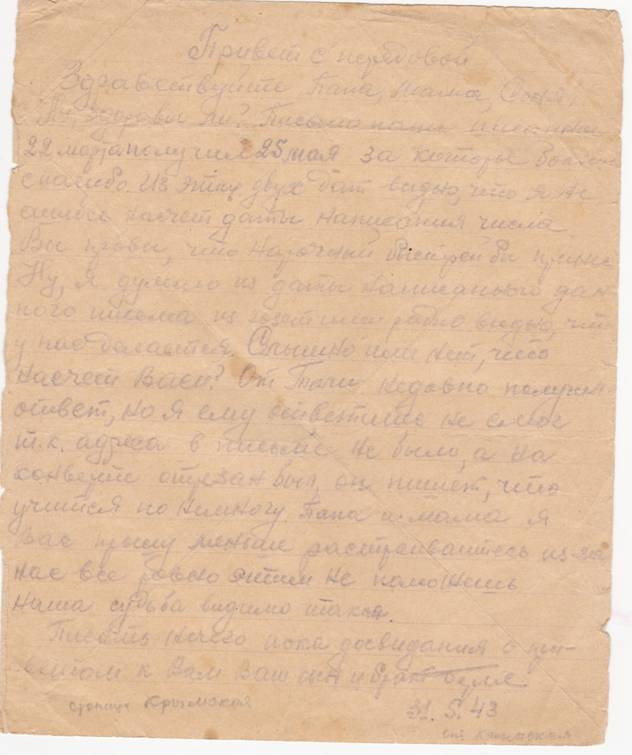 Привет с передовой
Здравствуйте Папа, Мама,
здоровы ли? Письмо
22 марта получил 25 мая за которое
спасибо. Из этих двух дат видно, что я не
насчет даты написания числа
Вы правы, что Нарочный быстрей бы
Ну, я думаю из даты написанного дан
ного письма из газет или радио видно, что
у нас делается. Слышно или нет, что
насчет Васи? От недавно получил
ответ, но я ему ответить не смог
т.к. адреса в письме не было, а на
конверте отрезан был, он пишет, что
учится по немногу. Папа и мама я
Вас прошу меньше растраивайтесь из-за
нас все ровно этим не поможешь
наша судьба видимо такая.
Писать нечего пока досвидания с при-
ветом к Вам Ваш сын и брат
станица Крымская 31.5.43